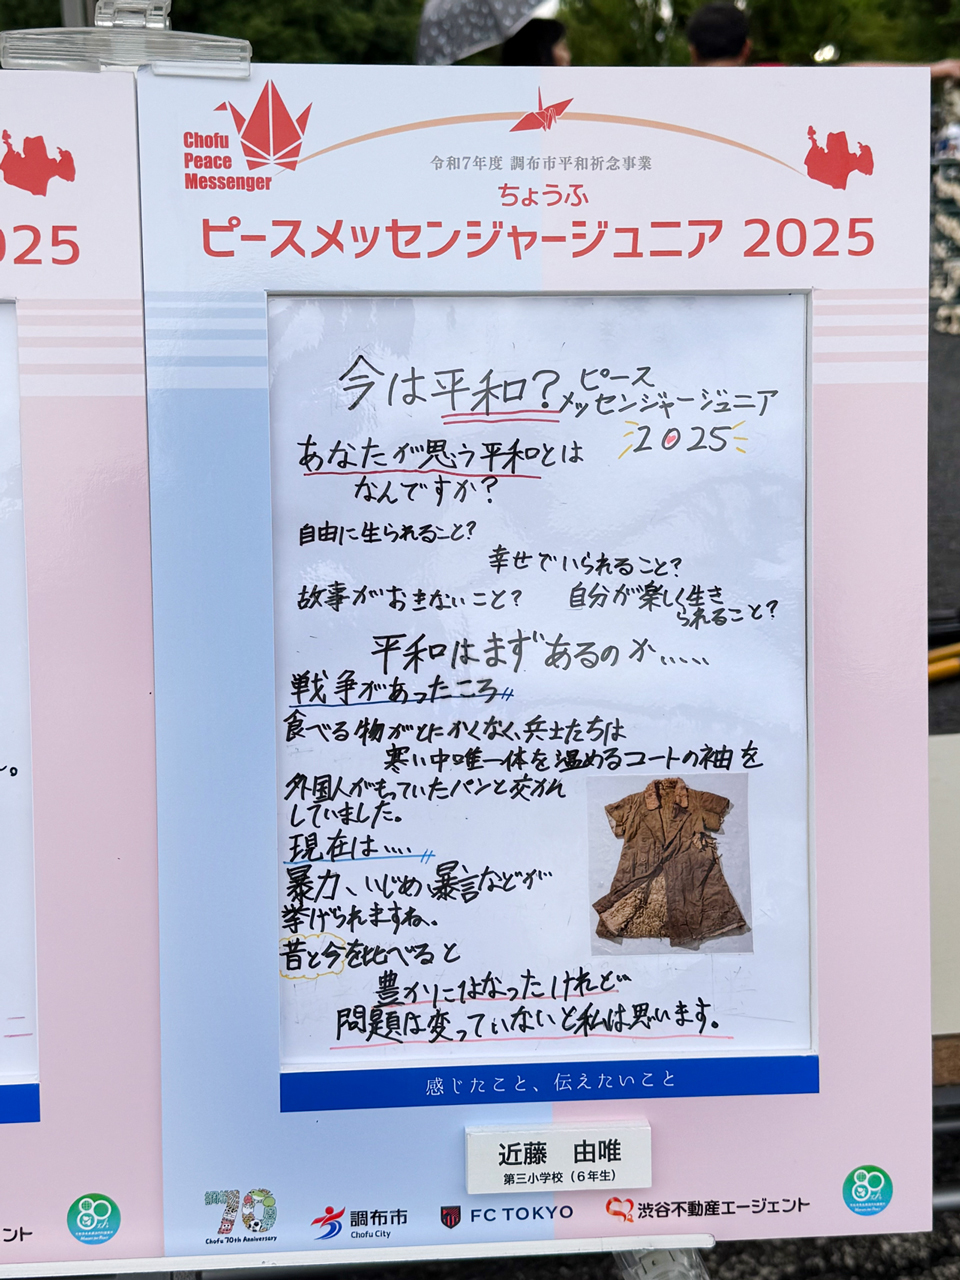 Chofu
Peace
Messenger
令和7年度 調布市平和祈念事業
ちょうふ
ピースメッセンジャージュニア 2025
025
今は平和?
ピース
メッセンジャージュニア
2025
あなたが思う平和とは
なんですか?
自由に生られること?
幸せでいられること?
故事がおきないこと?
自分が楽しく生き
られること?
平和はまずあるのか.....
戦争があったころ
食べる物がとにかくなく、兵士たちは
寒い中唯一体を温めるコートの袖を
外国人がもっていたパンと交かん
していました。
現在は....
暴力、いじめ、暴言などが
挙げられますね。
昔と今を比べると
豊かにはなったけれど
問題は変っていないと私は思います。
感じたこと、伝えたいこと
近藤 由唯
第三小学校(6年生)
70
Chofu 70th Anniversary
調布市
Chofu City
FC TOKYO
渋谷不動産エージェント
80th
ント
80th